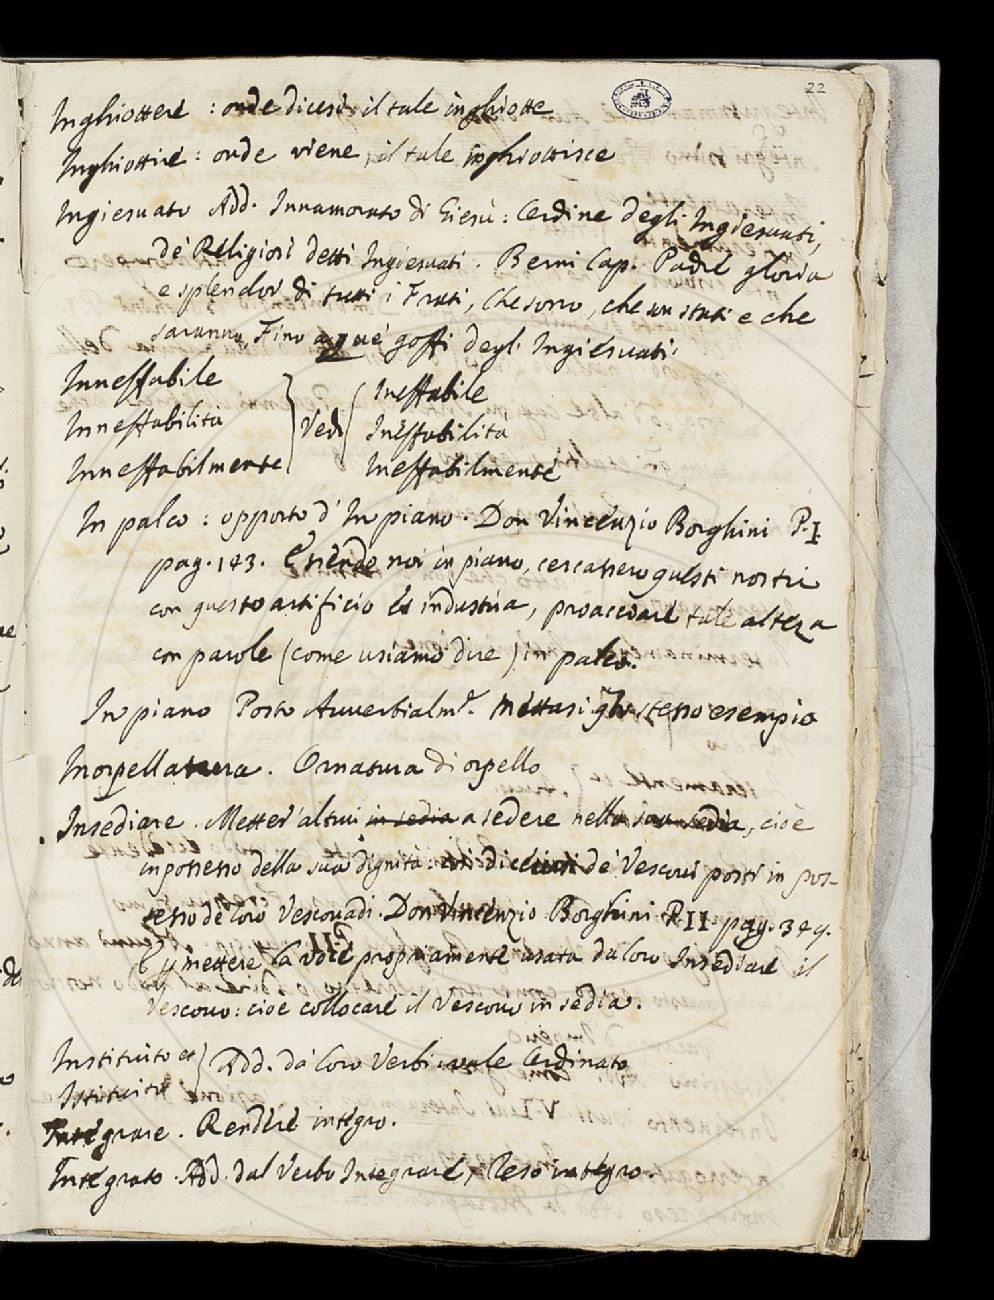 22
Inghiottere : onde dicesi: il tale inghiotte
Inghiottire : onde viene, il tale inghiottisce
Ingiesuato Add. Innamorato di Giesù : Ordine degli Ingiesuati,
de' Religiosi detti Ingiesuati. Berni Cap. Padre gloria
e splendor di tutti i Frati, che sono, che son stati e che
saranno, Fino a que' goffi degl' Ingiesuati.
Inneffabile } Vedi { Ineffabile
Inneffabilità Ineffabilità
Inneffabilmente Ineffabilmente
In palco : opposto d' In piano. Don Vincenzio Borghini P. I.
pag. 143. Essendo noi in piano, cercassero questi nostri
con questo artificio et industria, procacciare tale alteza
con parole (come usiamo dire) in palco.
In piano Posto Avverbialm.e Mettasi lo stesso esempio
Inorpellatura. Ornatura di orpello
Insediare. Metter altrui in sedia a sedere nella sua sedia, cioè
in possesso della sua dignità: de' Vescovi posti in pos-
sesso de' loro Vescovadi. Don Vincenzio Borghini P. II pag. 344.
P. II
mettere la voce propriamente usata da loro Insediare il
Vescovo: cioè collocare il Vescovo in sedia.
Instituito et } Add. da' loro Verbi: vale Ordinato
Istituito
Integrare. Rendere integro.
Integrato. Add. dal Verbo Integrare, Reso integro.